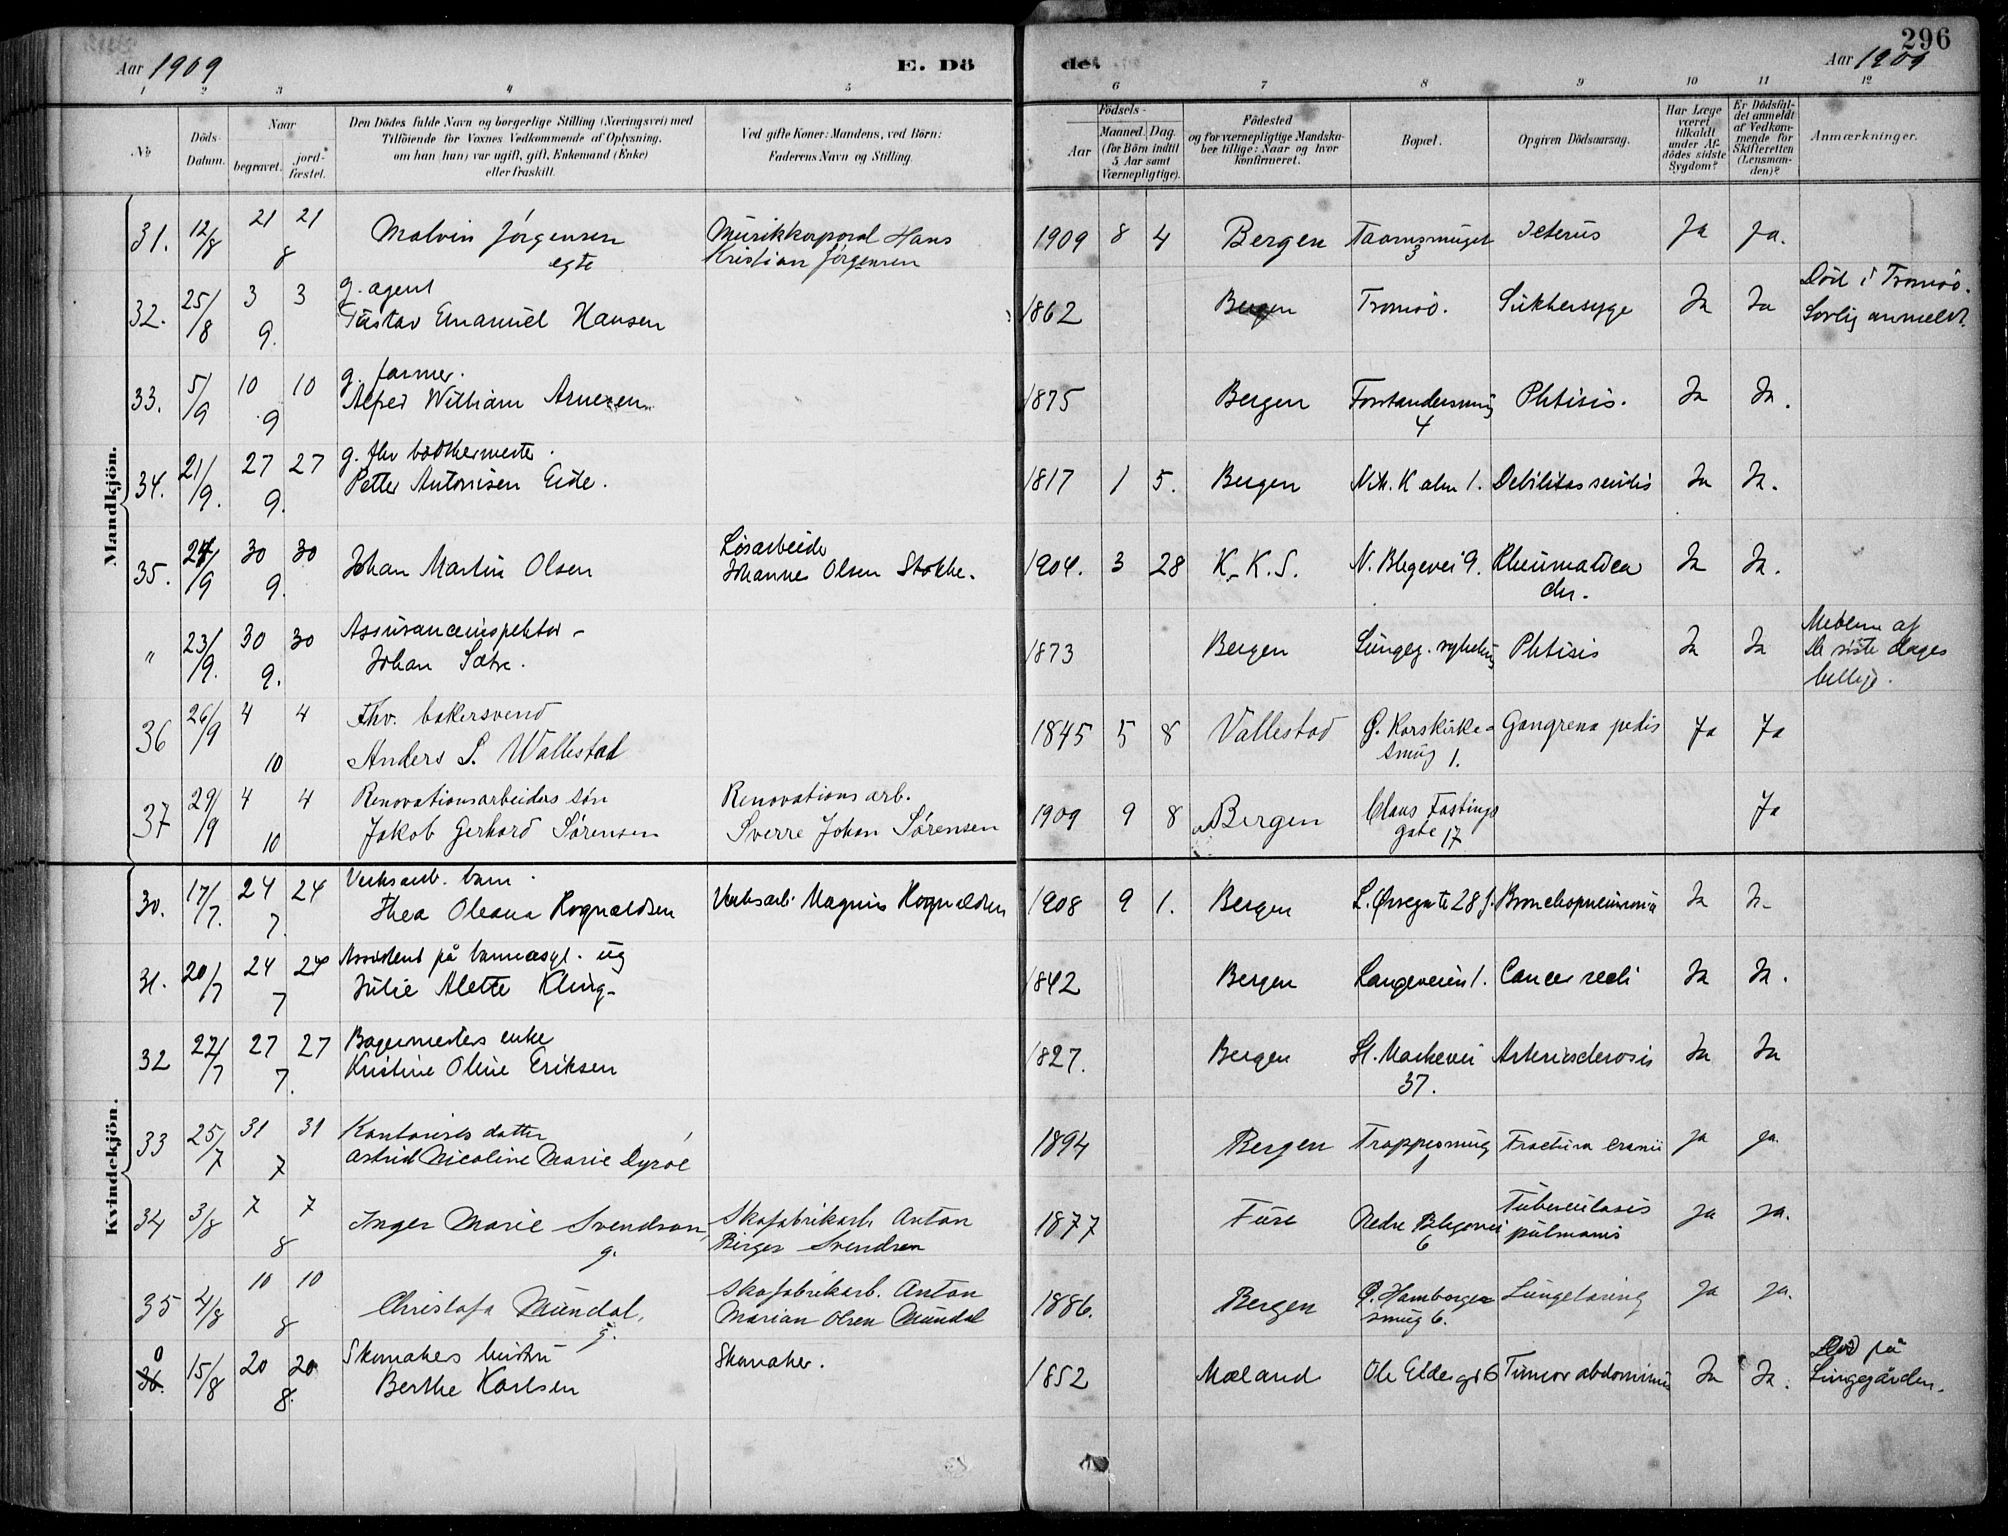 296
Aar 1909
E. Dö
det
Aar 1909
1 2 3 4 5 6 7 8 9 10 11 12
No
Döds-Datum.
Naar
begravet.
jord-fæstet.
Den Dödes fulde Navn og borgerlige Stilling (Næringsvei) med
Tilföiende for Voxnes Vedkommende af Oplysning,
om han (hun) var ugift, gift, Enkemand (Enke)
eller fraskilt.
Ved gifte Koner: Mandens, ved Börn:
Faderens Navn og Stilling.
Födsels-
Aar
Maaned. Dag.
(for Börn indtil
5 Aar samt
Værnepligtige).
Födested
og for værnepligtige Mandska-
ber tillige: Naar og hvor
konfirmeret.
Bopæl.
Opgiven Dödsaarsag.
Har Læge
været
tilkaldt
under Af-
dödes sidste
Sygdom?
Er Dödsfal-
det anmeldt
af Vedkom-
mende for
Skifteretten
(Lensman-
den)?
Anmærkninger.
Mandkjön.
31. 12/8 21 21 8 Malvin Jørgensen egte Musikkorporal Hans Kristian Jørgensen 1909 8 4 Bergen Taarnsmuget 3 Icterus Ja Ja.
32. 25/8 3 3 9. g. agent Gustav Emanuel Hansen 1862 Bergen Tromsö. Sukkersyge Ja Ja Död i Tromsö. Lovlig anmeldt.
33. 5/9 10 10 9 g. farmer. Alfred William Arnesen 1875 Bergen Forstandersmug 4 Phtisis. Ja Ja.
34. 21/9. 27 27 9. g. fhv bödkermester. Petter Antonisen Eide. 1817 1 5. Bergen Nik. K alm 1. Debilitas senilis Ja Ja.
35. 24/9 30 30 9. Johan Martin Olsen Løsarbeider Johannes Olsen Stokke. 1904. 3 28 K.K.S. N. Blegevei 9. Rheumatidea chr. Ja Ja.
" 23/9. 30 30 9. Assuranceinspektør - Johan Sætre. 1873 Bergen Lungeg. sykehus Phtisis Ja Ja Medlem af De siste dages hellige.
36 26/9 4 4 10 Fhv. bakersvend Anders S. Wallestad 1845 5 8 Vallestad Ø. Korskirke-smug 1. Gangrena pedis Ja Ja
37 29/9 4 4 10 Renovationsarbeiders søn Jakob Gerhard Sørensen Renovations arb. Sverre Johan Sørensen 1909 9 8 Bergen Claus Fastings gate 17 Ja
Kvindekjön.
30. 17/7. 24 24 7. Verksarb. barn. Thea Oleana Rognaldsen Verksarb. Magnus Rognaldsen 1908 9 1. Bergen L. Øvregate 28 Bronchopneumonia Ja Ja
31. 20/7 24 24 7 Assistent på barneasyl. ug Julie Alette Kling- 1842 Bergen Langeveien 1. Cancer recti Ja Ja.
32 22/7 27 27 7. Bagermesters enke Kristine Oline Eriksen 1827. Bergen St. Markevei 37. Arteriosclerosis Ja Ja
33 25/7 31 31 7 Kontorists datter Astrid Nicoline Marie Dyröe 1894 Bergen Trappesmug 1 Fractura cranii ja ja.
34 3/8 7 7 8 Inger Marie Svendsen, g. Skofabrikarb Anton Birger Svendsen 1877 Fure Nedre Blegevei 6 Tuberculosis pulmonis ja ja.
35 4/8 10 10 8 Christofa Mundal, g. Skofabrikarb. Anton Marian Olsen Mundal 1886. Bergen Ø. Hamburger smug 6. Lungetæring ja ja.
36. 0 15/8 20 20 8. Skomakers hustru Berthe Karlsen Skomaker. 1852 Mæland Ole Eldes gt 6 Tumor abdominis Ja Ja. Död på Lungegården.